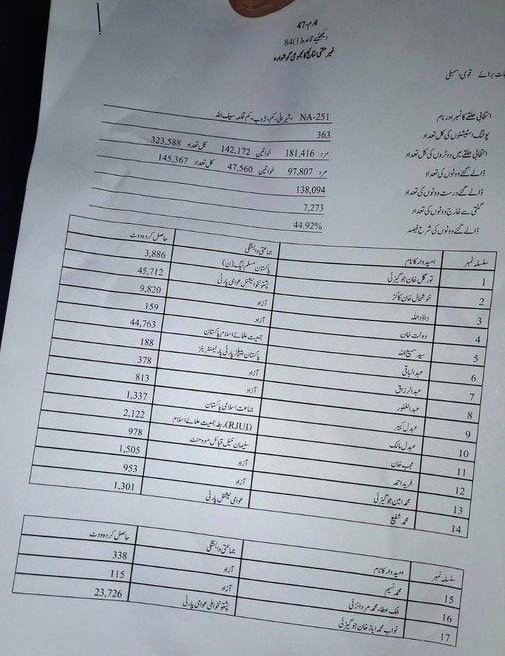 فارم-47
دیکھیے قاعدہ (1)84
غیر حتمی نتائج کا مجموعی گوشوارہ
بات برائے قومی اسمبلی
انتخابی حلقے کا نمبر اور نام NA-251 ۔شیرانی۔کم۔ژوب۔کم قلعہ سیف اللہ
پولنگ اسٹیشنوں کی کل تعداد 363
انتخابی حلقے میں ووٹروں کی کل تعداد مرد 181,416 خواتین 142,172 کل تعداد 323,588
ڈالے گئے ووٹوں کی تعداد مرد 97,807 خواتین 47,560 کل تعداد 145,367
ڈالے گئے درست ووٹوں کی تعداد 138,094
گنتی سے خارج ووٹوں کی تعداد 7,273
ڈالے گئے ووٹوں کی شرح فیصد 44.92%
سلسلہ نمبر امیدوار کا نام جماعتی وابستگی حاصل کردہ ووٹ
1 نور گل خان جوگیزئی پاکستان مسلم لیگ (ن) 3,886
2 خوشحال خان کاکڑ پشتونخوا نیشنل عوامی پارٹی 45,712
3 داؤد اللہ آزاد 9,820
4 دولت خان آزاد 159
5 سید سمیع اللہ جمعیت علمائے اسلام پاکستان 44,763
6 عبدالباقی پاکستان پیپلز پارٹی پارلیمنٹیرینز 188
7 عبدالرزاق آزاد 378
8 عبدالغفور آزاد 813
9 عبدل کبیر جماعت اسلامی پاکستان 1,337
10 عبدل مالک (RJUD) رابطہ جمعیت علمائے اسلام 2,122
11 مجیب خان سلیمان خیل قبائل موومنٹ 978
12 فرید احمد آزاد 1,505
13 محمد امین جوگیزئی آزاد 953
14 محمد شفیع عوامی نیشنل پارٹی 1,301
سلسلہ نمبر امیدوار کا نام جماعتی وابستگی حاصل کردہ ووٹ
15 محمد نسیم آزاد 338
16 ملک عطاء محمد مردانزئی آزاد 115
17 نواب محمد ایاز خان جوگیزئی پشتونخوا ملی عوامی پارٹی 23,726